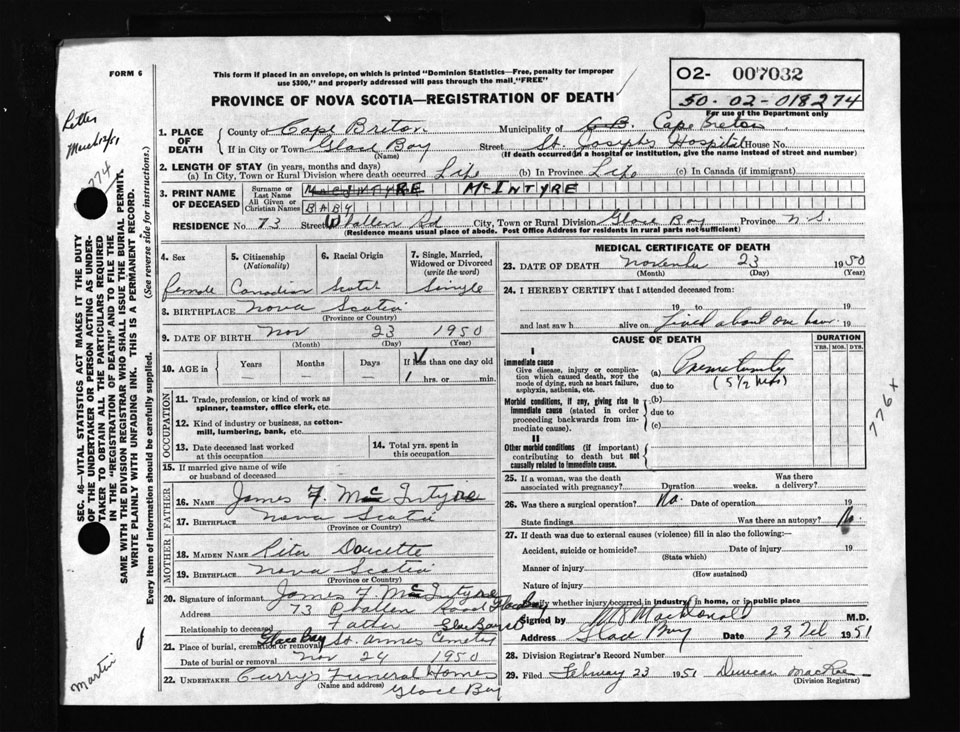 FORM 6
This form if placed in an envelope, on which is printed "Dominion Statistics—Free, penalty for improper
use $300," and properly addressed will pass through the mail "FREE"
PROVINCE OF NOVA SCOTIA—REGISTRATION OF DEATH
02- 007032
50-02-018274
For use of the Department only
1. PLACE OF DEATH
County of Cape Breton Municipality of C.B. Cape Breton
If in City or Town Glace Bay Street St. Josephs Hospital House No.
(Name) (If death occurred in a hospital or institution, give the name instead of street and number)
2. LENGTH OF STAY (in years, months and days)
(a) In City, Town or Rural Division where death occurred Life (b) In Province Life (c) In Canada (if immigrant)
3. PRINT NAME OF DECEASED
Surname or Last Name MACINTYRE McINTYRE
All Given or Christian Names BABY
RESIDENCE No. 73 Street Phallen Rd City, Town or Rural Division Glace Bay Province N.S.
(Residence means usual place of abode. Post Office Address for residents in rural parts not sufficient)
4. Sex
female
5. Citizenship (Nationality)
Canadian
6. Racial Origin
Scotch
7. Single, Married, Widowed or Divorced (write the word)
Single
8. BIRTHPLACE Nova Scotia
(Province or Country)
9. DATE OF BIRTH Nov 23 1950
(Month) (Day) (Year)
10. AGE in Years Months Days If less than one day old
1 hrs. or min.
OCCUPATION
11. Trade, profession, or kind of work as
spinner, teamster, office clerk, etc.
12. Kind of industry or business, as cotton-
mill, lumbering, bank, etc.
13. Date deceased last worked
at this occupation
14. Total yrs. spent in
this occupation
15. If married give name of wife
or husband of deceased
FATHER
16. NAME James F. MacIntyre
17. BIRTHPLACE Nova Scotia
(Province or Country)
MOTHER
18. MAIDEN NAME Rita Doucette
19. BIRTHPLACE Nova Scotia
(Province or Country)
20. Signature of informant James F. McIntyre
Address 73 Phallen Road Glace Bay
Relationship to deceased Father Glace Bay
21. Place of burial, cremation or removal Glace Bay St. Annes Cemetery
Date of burial or removal Nov 24 1950
22. UNDERTAKER Curry's Funeral Homes
(Name and address) Glace Bay
MEDICAL CERTIFICATE OF DEATH
23. DATE OF DEATH November 23 1950
(Month) (Day) (Year)
24. I HEREBY CERTIFY that I attended deceased from:
19 to 19
and last saw h alive on Lived about one hour. 19
CAUSE OF DEATH
DURATION
YRS. MOS. DYS.
I
Immediate cause
Give disease, injury or compli-
cation which caused death, NOT the
mode of dying, such as heart failure,
asphyxia, asthenia, etc.
(a) Prematurity
due to (5 1/2 mos)
Morbid conditions, if any, giving rise to
immediate cause (stated in order
proceeding backwards from im-
mediate cause).
(b)
due to
(c)
II
Other morbid conditions (if important)
contributing to death but not
causally related to immediate cause.
25. If a woman, was the death
associated with pregnancy? Duration weeks. Was there
a delivery?
26. Was there a surgical operation? No. Date of operation 19
State findings Was there an autopsy? No
27. If death was due to external causes (violence) fill in also the following:—
Accident, suicide or homicide? Date of injury 19
(State which)
Manner of injury
(How sustained)
Nature of injury
Specify whether injury occurred in industry, in home, or in public place
Signed by MacDonald M.D.
Address Glace Bay Date 23 Feb 1951
28. Division Registrar's Record Number
29. Filed February 23 1951 Duncan MacRae
(Division Registrar)
SEC. 46—VITAL STATISTICS ACT MAKES IT THE DUTY
OF THE UNDERTAKER OR PERSON ACTING AS UNDER-
TAKER TO OBTAIN ALL THE PARTICULARS REQUIRED
IN THE "REGISTRATION OF DEATH" AND TO FILE THE
SAME WITH THE DIVISION REGISTRAR WHO SHALL ISSUE THE BURIAL PERMIT.
WRITE PLAINLY WITH UNFADING INK. THIS IS A PERMANENT RECORD.
Every item of information should be carefully supplied. (See reverse side for instructions.)
Letter
March 12/51
774
Martin
776 x